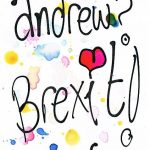 andrew?
Brexit